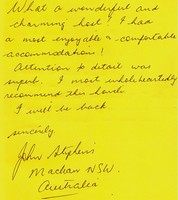 What a wonderful and
charming host! I had
a most enjoyable & comfortable
accommodation!
Attention to detail was
superb. I most wholeheartedly
recommend this
I will be back
sincerely
John Stephens
Maclean NSW.
Australia